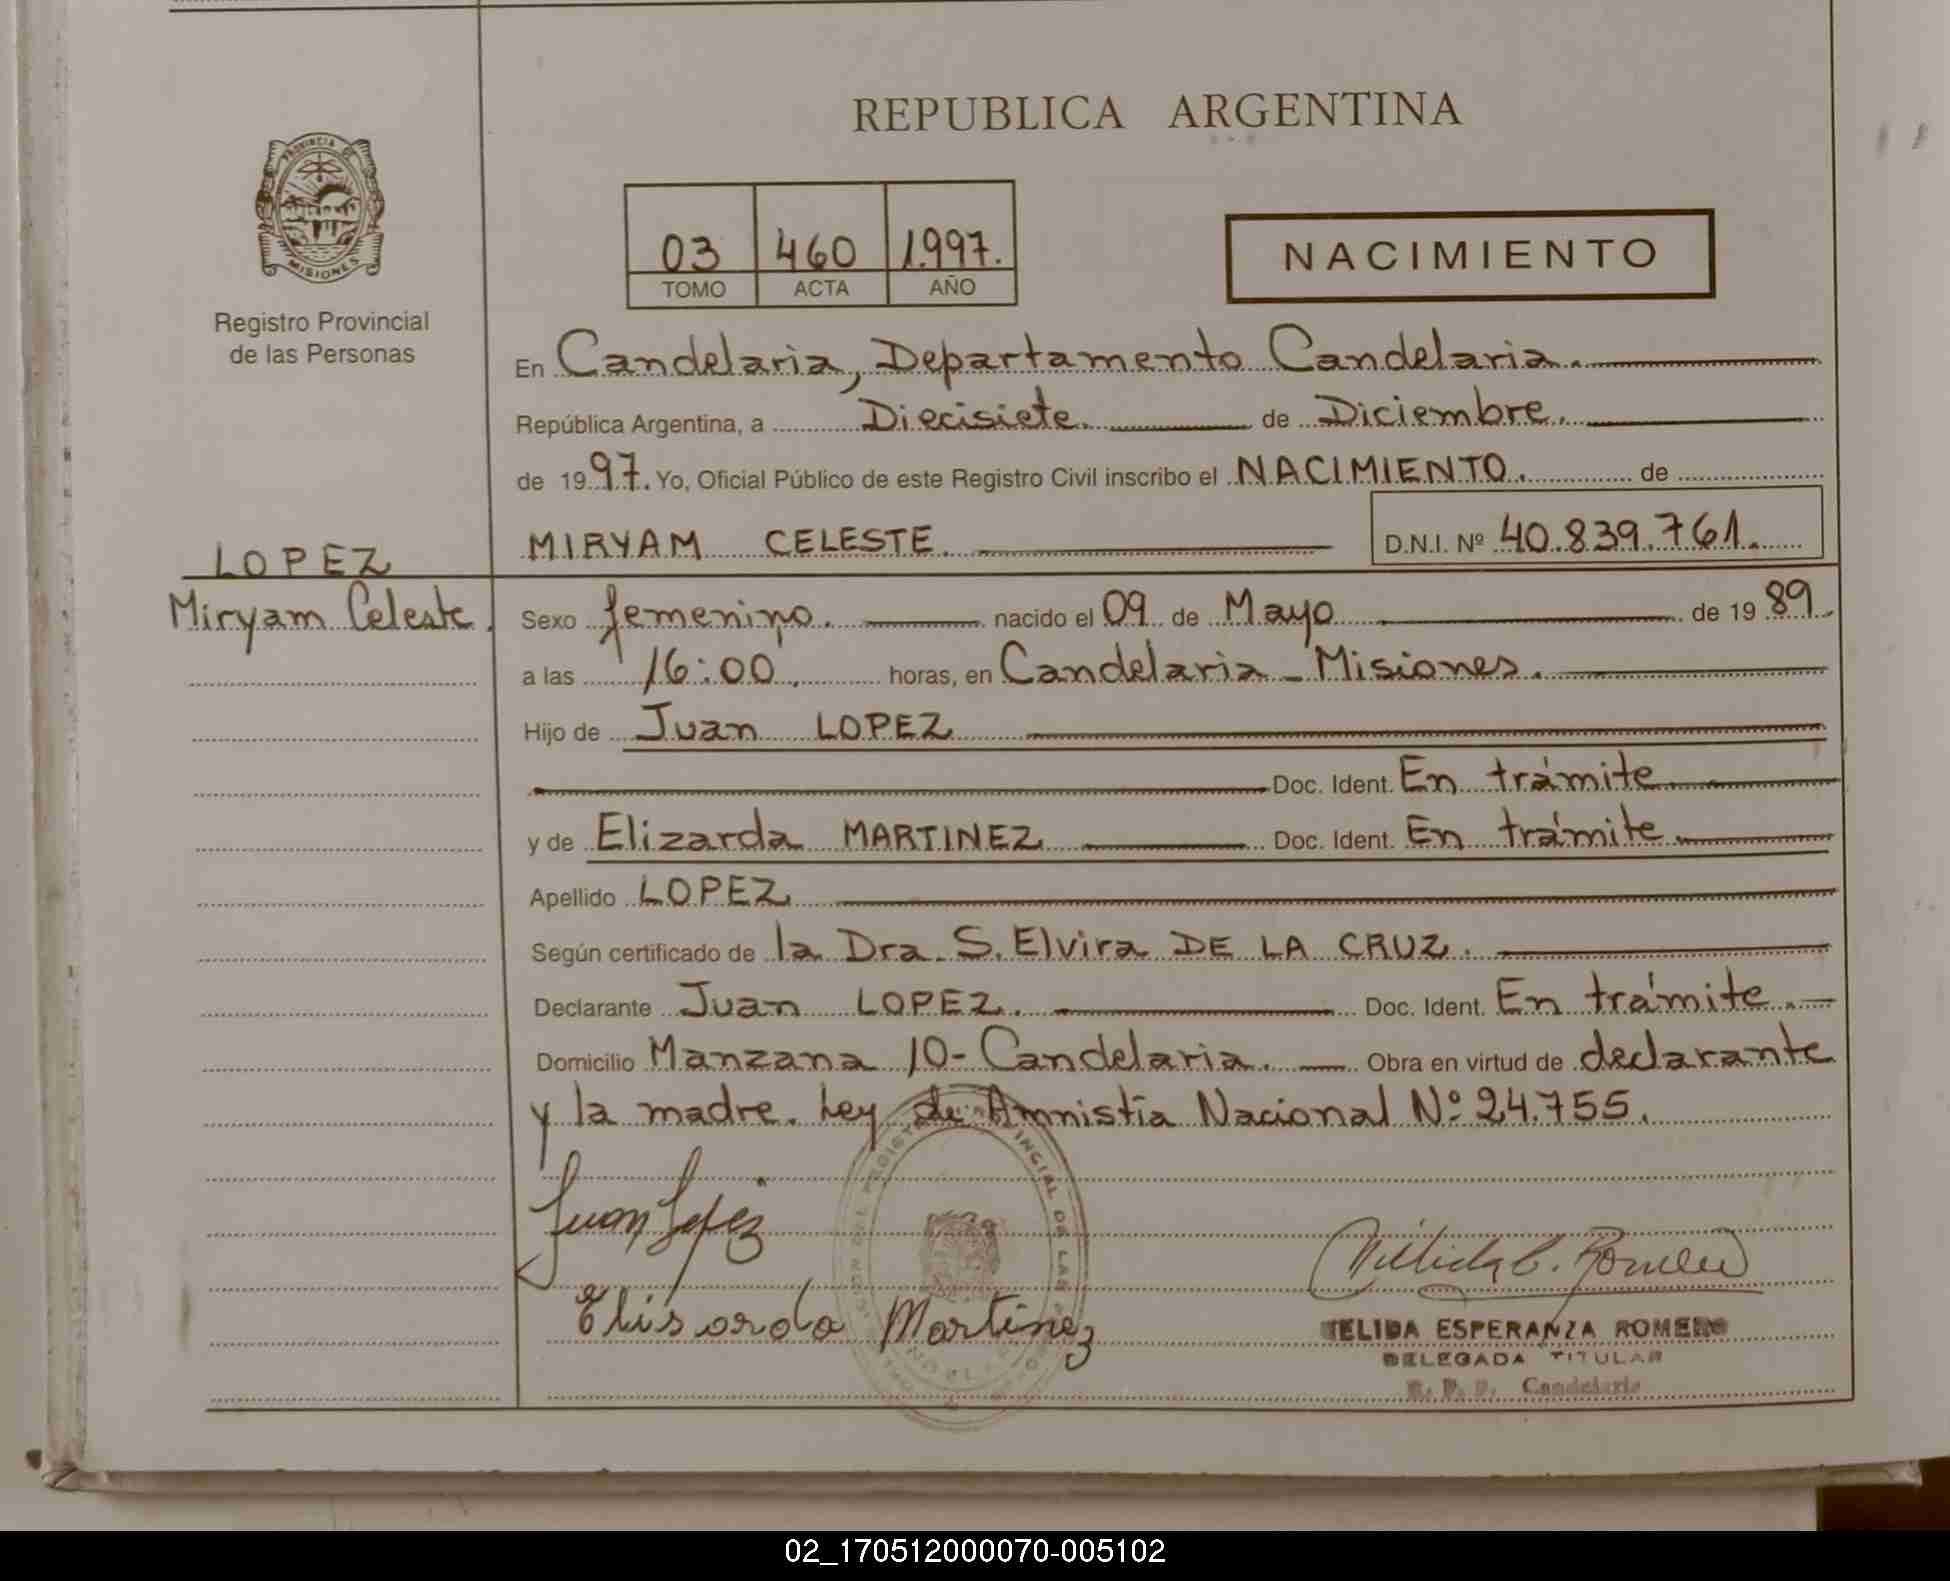 REPUBLICA ARGENTINA
PROVINCIA DE
MISIONES
Registro Provincial
de las Personas
03 460 1.997.
TOMO ACTA AÑO
NACIMIENTO
En Candelaria, Departamento Candelaria.
República Argentina, a Diecisiete. de Diciembre.
de 19 97. Yo, Oficial Público de este Registro Civil inscribo el NACIMIENTO. de
MIRYAM CELESTE. D.N.I. Nº 40.839.761.
LOPEZ
Miryam Celeste.
Sexo femenino. nacido el 09 de Mayo de 19 89.
a las 16:00. horas, en Candelaria - Misiones.
Hijo de Juan LOPEZ
Doc. Ident. En trámite
y de Elizarda MARTINEZ Doc. Ident. En trámite.
Apellido LOPEZ
Según certificado de la Dra. S. Elvira DE LA CRUZ.
Declarante Juan LOPEZ. Doc. Ident. En trámite.
Domicilio Manzana 10- Candelaria. Obra en virtud de declarante
y la madre. Ley de Amnistía Nacional Nº 24.755.
Juan Lopez
Elisarda Martinez
ESPERANZA ROMERO
DELEGADA TITULAR
R. P. P. Candelaria
02_170512000070-005102